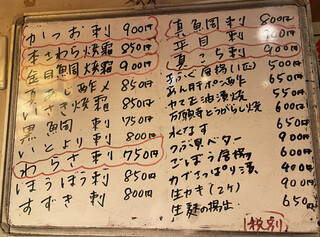 かつお刺 900円
本さわら焼霜 850円
金目鯛焼霜 900円
真あじ酢〆 850円
いさき焼霜 850円
黒鯛刺 750円
いとより刺 800円
わらさ刺 750円
ほうぼう刺 850円
すずき刺 800円
真鯛刺 800円
平目刺 900円
真こち刺 900円
唐揚(1匹) 500円
あん肝ポン酢 650円
カマ正油漬焼 550円
万願寺とうがらし焼 600円
水なす 650円
つぶ貝バター 900円
ごぼう唐揚 600円
かぶさっぱり漬 400円
生カキ(2ケ) 900円
生麩の揚出 650円
(税別)